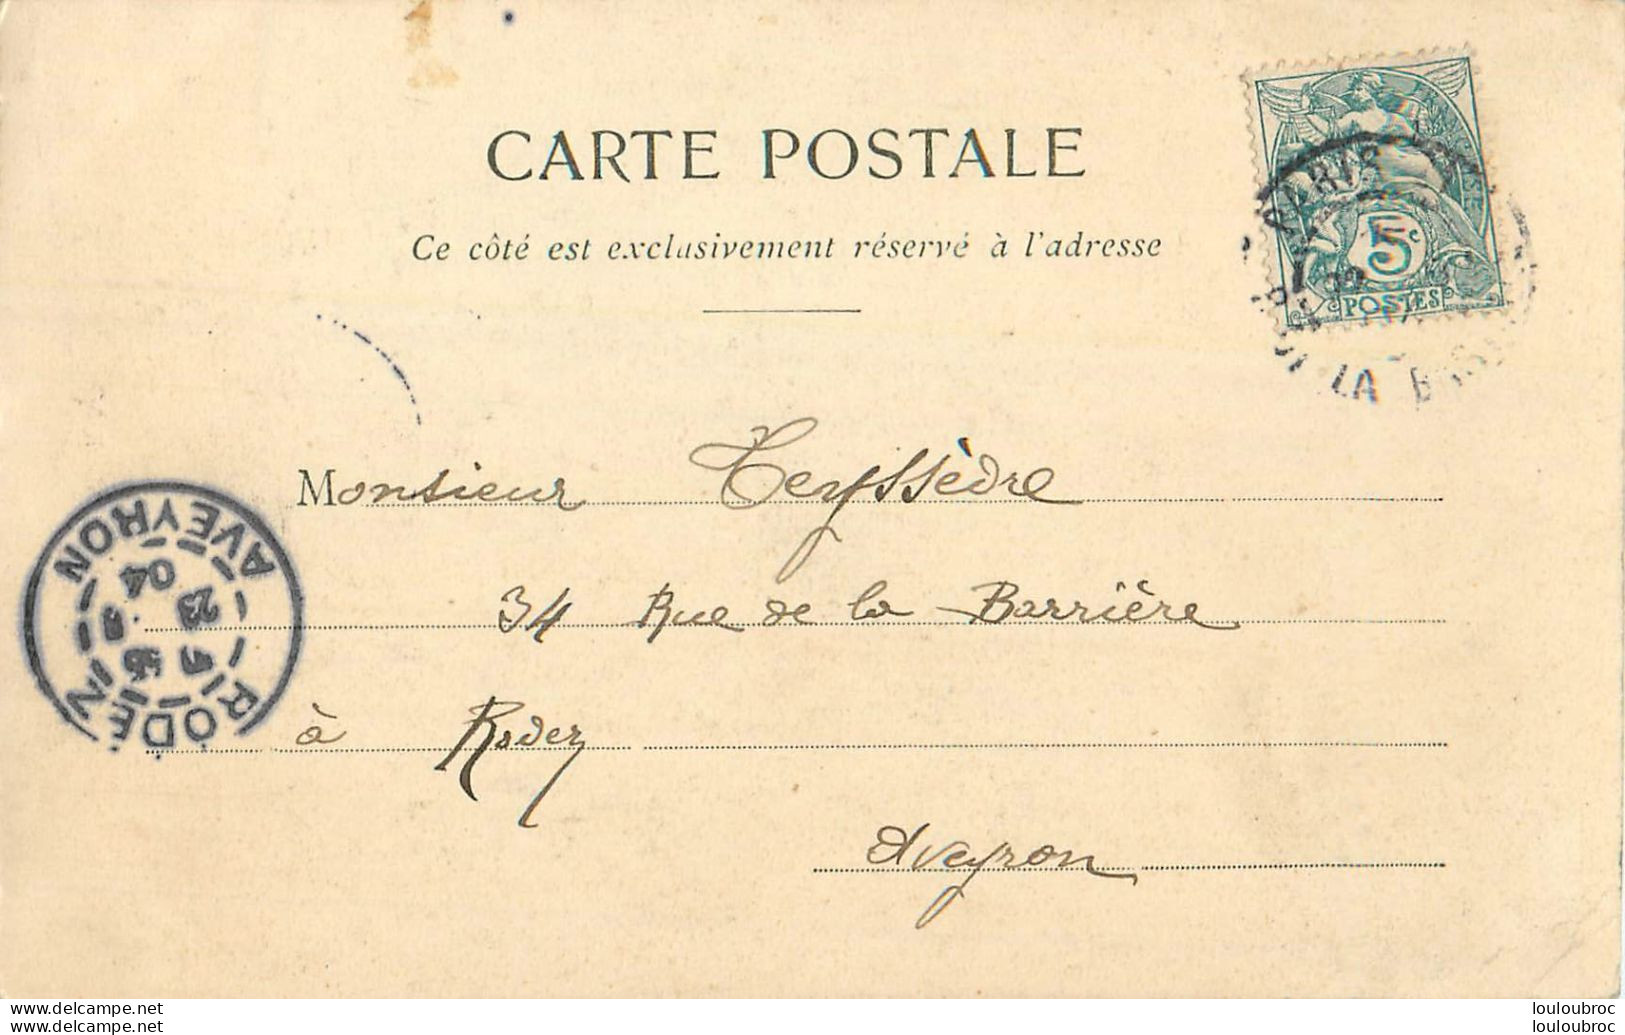 CARTE POSTALE
Ce côté est exclusivement réservé à l'adresse
5c
POSTES
PARIS
LA
Monsieur Teyssèdre
34 Rue de la Barrière
à Rodez
Aveyron
RODEZ
23
04
AVEYRON
delcampe.net
louloubroc
louloubroc